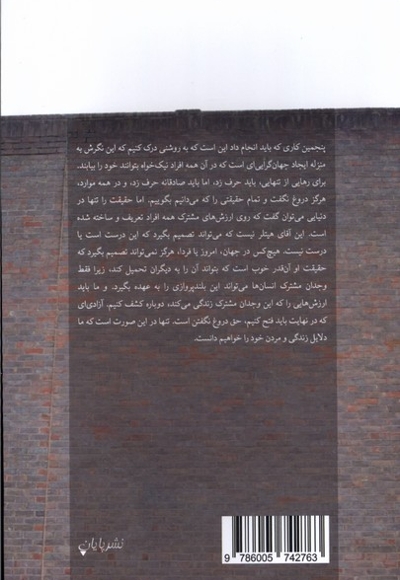 پنجمین کاری که باید انجام داد این است که به روشنی درک کنیم که این نگرش به
منزله ایجاد جهان‌گرایی‌ای است که در آن همه افراد نیک‌خواه بتوانند خود را بیابند.
برای رهایی از تنهایی، باید حرف زد، اما باید صادقانه حرف زد، و در همه موارد،
هرگز دروغ نگفت و تمام حقیقتی را که می‌دانیم بگوییم. اما حقیقت را تنها در
دنیایی می‌توان گفت که روی ارزش‌های مشترک همه افراد تعریف و ساخته شده
است. این آقای هیتلر نیست که می‌تواند تصمیم بگیرد که این درست است یا
درست نیست. هیچ‌کس در جهان، امروز یا فردا، هرگز نمی‌تواند تصمیم بگیرد که
حقیقت او آن‌قدر خوب است که بتواند آن را به دیگران تحمیل کند، زیرا فقط
وجدان مشترک انسان‌ها می‌تواند این بلندپروازی را به عهده بگیرد. و ما باید
ارزش‌هایی را که این وجدان مشترک زندگی می‌کند، دوباره کشف کنیم. آزادی‌ای
که در نهایت باید فتح کنیم، حق دروغ نگفتن است. تنها در این صورت است که ما
دلایل زندگی و مردن خود را خواهیم دانست.
نشر پایان
9 786005 742763